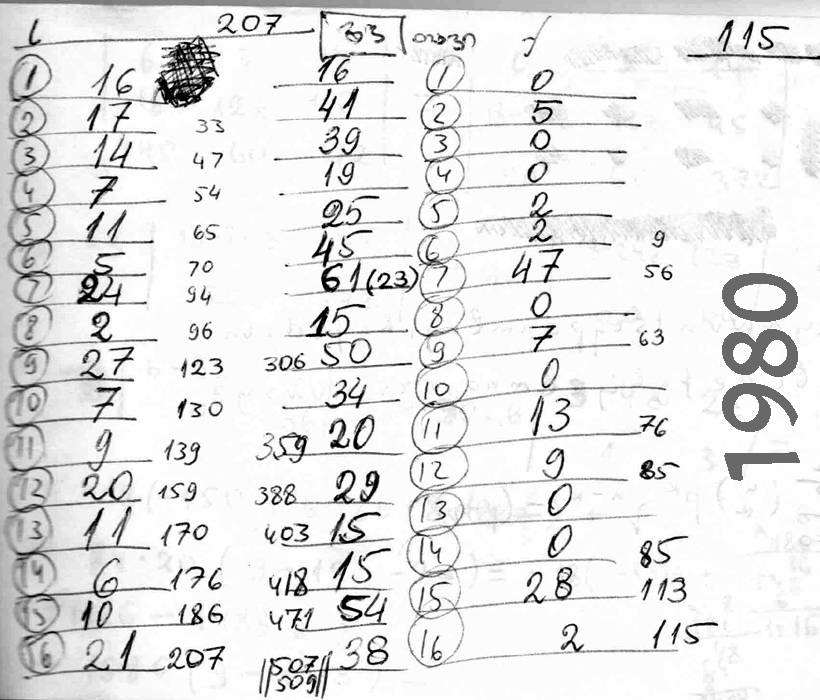 207 115
1 16 16 1 0
2 17 33 41 2 5
3 14 47 39 3 0
4 7 54 19 4 0
5 11 65 25 5 2
6 5 70 45 6 2 9
7 24 94 61 (23) 7 47 56
8 2 96 15 8 0
9 27 123 306 50 9 7 63
10 7 130 34 10 0
11 9 139 359 20 11 13 76
12 20 159 388 29 12 9 85
13 11 170 403 15 13 0
14 6 176 418 15 14 0 85
15 10 186 471 54 15 28 113
16 21 207 507 38 16 2 115
509
1980